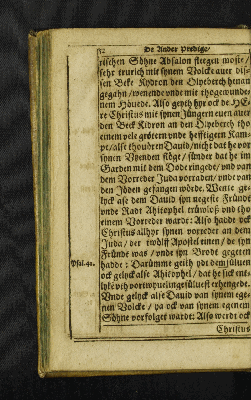 52 De Ander Predige/
rischen Söhne Absalon flegen moste/
sehr trurich mit synem Volcke auer dis-
sen Beke Kydron den Olyeberch henan
gegahn/ wenende vnde mit vnde
nem Höuede. Also geyth hyr ock de HE
re Christus mit synen Jüngern euen auer
den Beck Kidron an den Olyeberch tho
enem vele grötern vnde hefftigern Kam-
pe/ alse thouörn Dauid/ nicht dat he vor
synen Vyenden flöge/ sünder dat he im
Garden mit dem Dode ringede/ vnd van
dem Vorreder Juda vorraden/ vnde van
den Jöden gefangen wörde. Wente ge-
lyck alse dem Dauid syn negeste Fründt
vnde Radt Ahitophel trüwloß vnd tho
einem Vorreder wardt: Also hadde ock
Christus allhyr synen vorreder an dem
Juda/ der twölff Apostel einen/ de syn
Fründt was/ vnde syn Brodt gegeten
Psal.41. hadde: Darümme geith ydt demsüluen
ock gelyck alse Ahitophel/ dat he sick ent-
lyke vth vortwyuelinge sülfuest erhengede.
Vnde gelyck alse Dauid van synem ege-
nen Volcke/ ya ock van synem egenem
Söhne vorfolget wardt: Also werdt ock
Christus